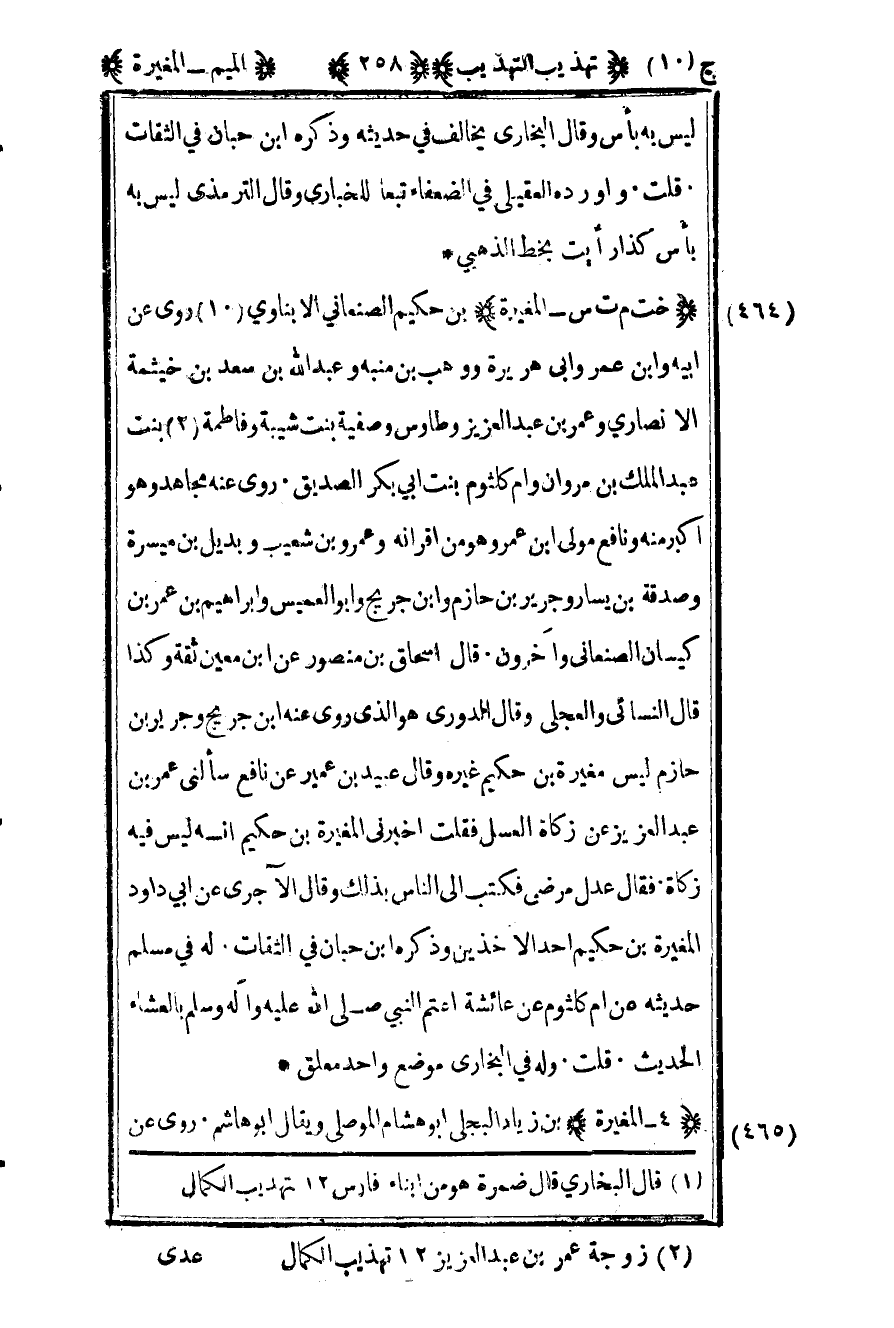 ج (١٠) ﴿ تهذيب التهذيب ﴾ ﴿ ٢٥٨ ﴾ ﴿ الميم ــ المغيرة ﴾
ليس به بأس وقال البخارى يخالف في حديثه وذكره ابن حبان في الثقات
· قلت · و اورده العقيلي في الضعفاء تبعا للخبارى وقال الترمذى ليس به
بأس كذا رأيت بخط الذهبي *
(٤٦٤) ﴿ خت م ت س ــ المغيرة ﴾ بن حكيم الصنعاني الابناوي (١٠) روى عن
ابيه وابن عمر وابى هريرة ووهب بن منبه وعبدالله بن سعد بن خيثمة
الانصاري وعمر بن عبدالعزيز وطاوس وصفية بنت شيبة وفاطمة (٢) بنت
عبدالملك بن مروان وام كلثوم بنت ابي بكر الصديق · روى عنه مجاهد وهو
اكبر منه ونافع مولى ابن عمر وهو من اقرانه وعمرو بن شعيب وبديل بن ميسرة
وصدقة بن يسار وجرير بن حازم وابن جريج وابو العميس وابراهيم بن عمر بن
كيسان الصنعانى وآخرون · قال اسحاق بن منصور عن ابن معين ثقة وكذا
قال النسائى والعجلى وقال الدورى هو الذى روى عنه ابن جريج وجرير بن
حازم ليس مغيرة بن حكيم غيره وقال عبيد بن عمير عن نافع سألنى عمر بن
عبدالعزيز عن زكاة العسل فقلت اخبرنى المغيرة بن حكيم انه ليس فيه
زكاة · فقال عدل مرضى فكتب الى الناس بذلك وقال الآجرى عن ابي داود
المغيرة بن حكيم احد الاخذين وذكره ابن حبان في الثقات · له في مسلم
حديثه عن ام كلثوم عن عائشة اعتم النبي صلى الله عليه وآله وسلم بالعشاء
الحديث · قلت · وله في البخارى موضع واحد معلق *
(٤٦٥) ﴿ ٤ــ المغيرة ﴾ بن زياد البجلى ابو هشام الموصلى ويقال ابو هاشم · روى عن
(١) قال البخاري قال ضمرة هو من ابناء فارس ١٢ تهذيب الكمال
(٢) زوجة عمر بن عبدالعزيز ١٢ تهذيب الكمال عدى